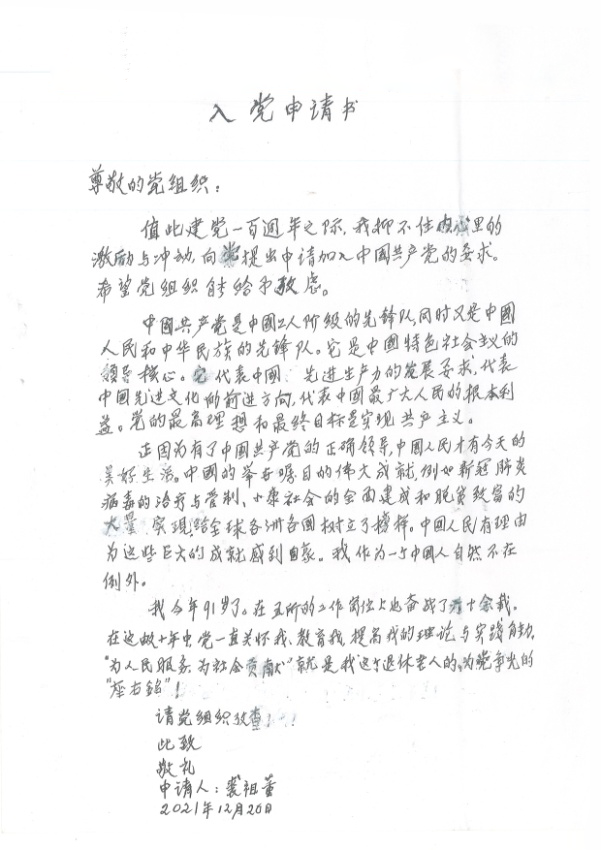 入党申请书
尊敬的党组织：
值此建党一百週年之际，我抑不住内心里的
激励与冲动，向党提出申请加入中国共产党的要求。
希望党组织能给予攷虑。
中國共产党是中國工人阶级的先锋队，同时又是中國
人民和中华民族的先锋队。它是中國特色社会主义的
领导核心。它代表中國先进生产力的发展要求，代表
中國先进文化的前进方向，代表中國最广大人民的根本利
益。党的最高理想和最终目标是实现共产主义。
正因为有了中國共产党的正确领导，中國人民才有今天的
美好生活。中國的举世瞩目的伟大成就，例如新冠肺炎
病毒的治疗与管制、小康社会的全面建成和脱贫致富的
大量实现，给全球各洲各國树立了榜样。中國人民有理由
为这些巨大的成就感到自豪。我作为一个中國人自然不在
例外。
我今年91岁了。在五所的工作岗位上也奋战了十余载。
在这数十年中，党一直关怀我、教育我，提高我的理论与实践自动，
“为人民服务，为社会贡献”就是我这个退休老人的，为党争光的
“座右铭”！
请党组织攷查！
此致
敬礼
申请人：裘祖
2021年12月26日